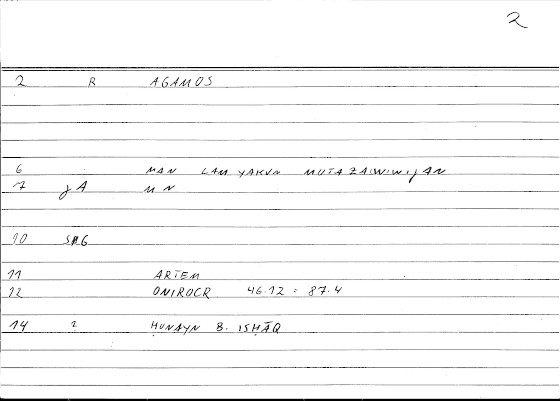 2
2 R AGAMOS
6 MAN LAM YAKUN MUTAZAWWIJAN
7 JA M N
10 SHG
11 ARTEM
12 ONIROCR 46.12 = 87.4
14 2 ḤUNAYN B. ISḤĀQ